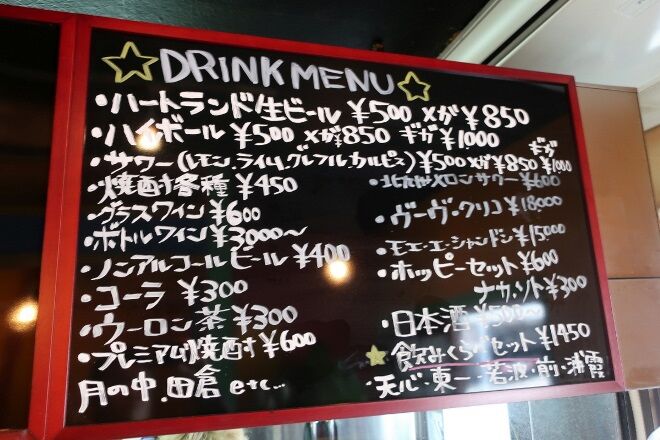 DRINK MENU
・ハートランド生ビール ¥500 メガ¥850
・ハイボール ¥500 メガ¥850 ギガ ¥1000
・サワー(レモン.ライム.グレフル.カルピス)¥500メガ¥850 ギガ¥1000
・焼酎各種 ¥450
・グラスワイン ¥600
・ボトルワイン ¥3000〜
・ノンアルコールビール ¥400
・コーラ ¥300
・ウーロン茶 ¥300
・プレミアム焼酎 ¥600
月の中.田倉 etc...
メロンサワー ¥600
・ヴーヴ・クリコ ¥18000
・モエ・エ・シャンドン ¥15000
・ホッピーセット¥600
ナカ.ソト ¥300
・日本酒 ¥500〜
飲みくらべセット¥1450
・天心・東一・若波・前・